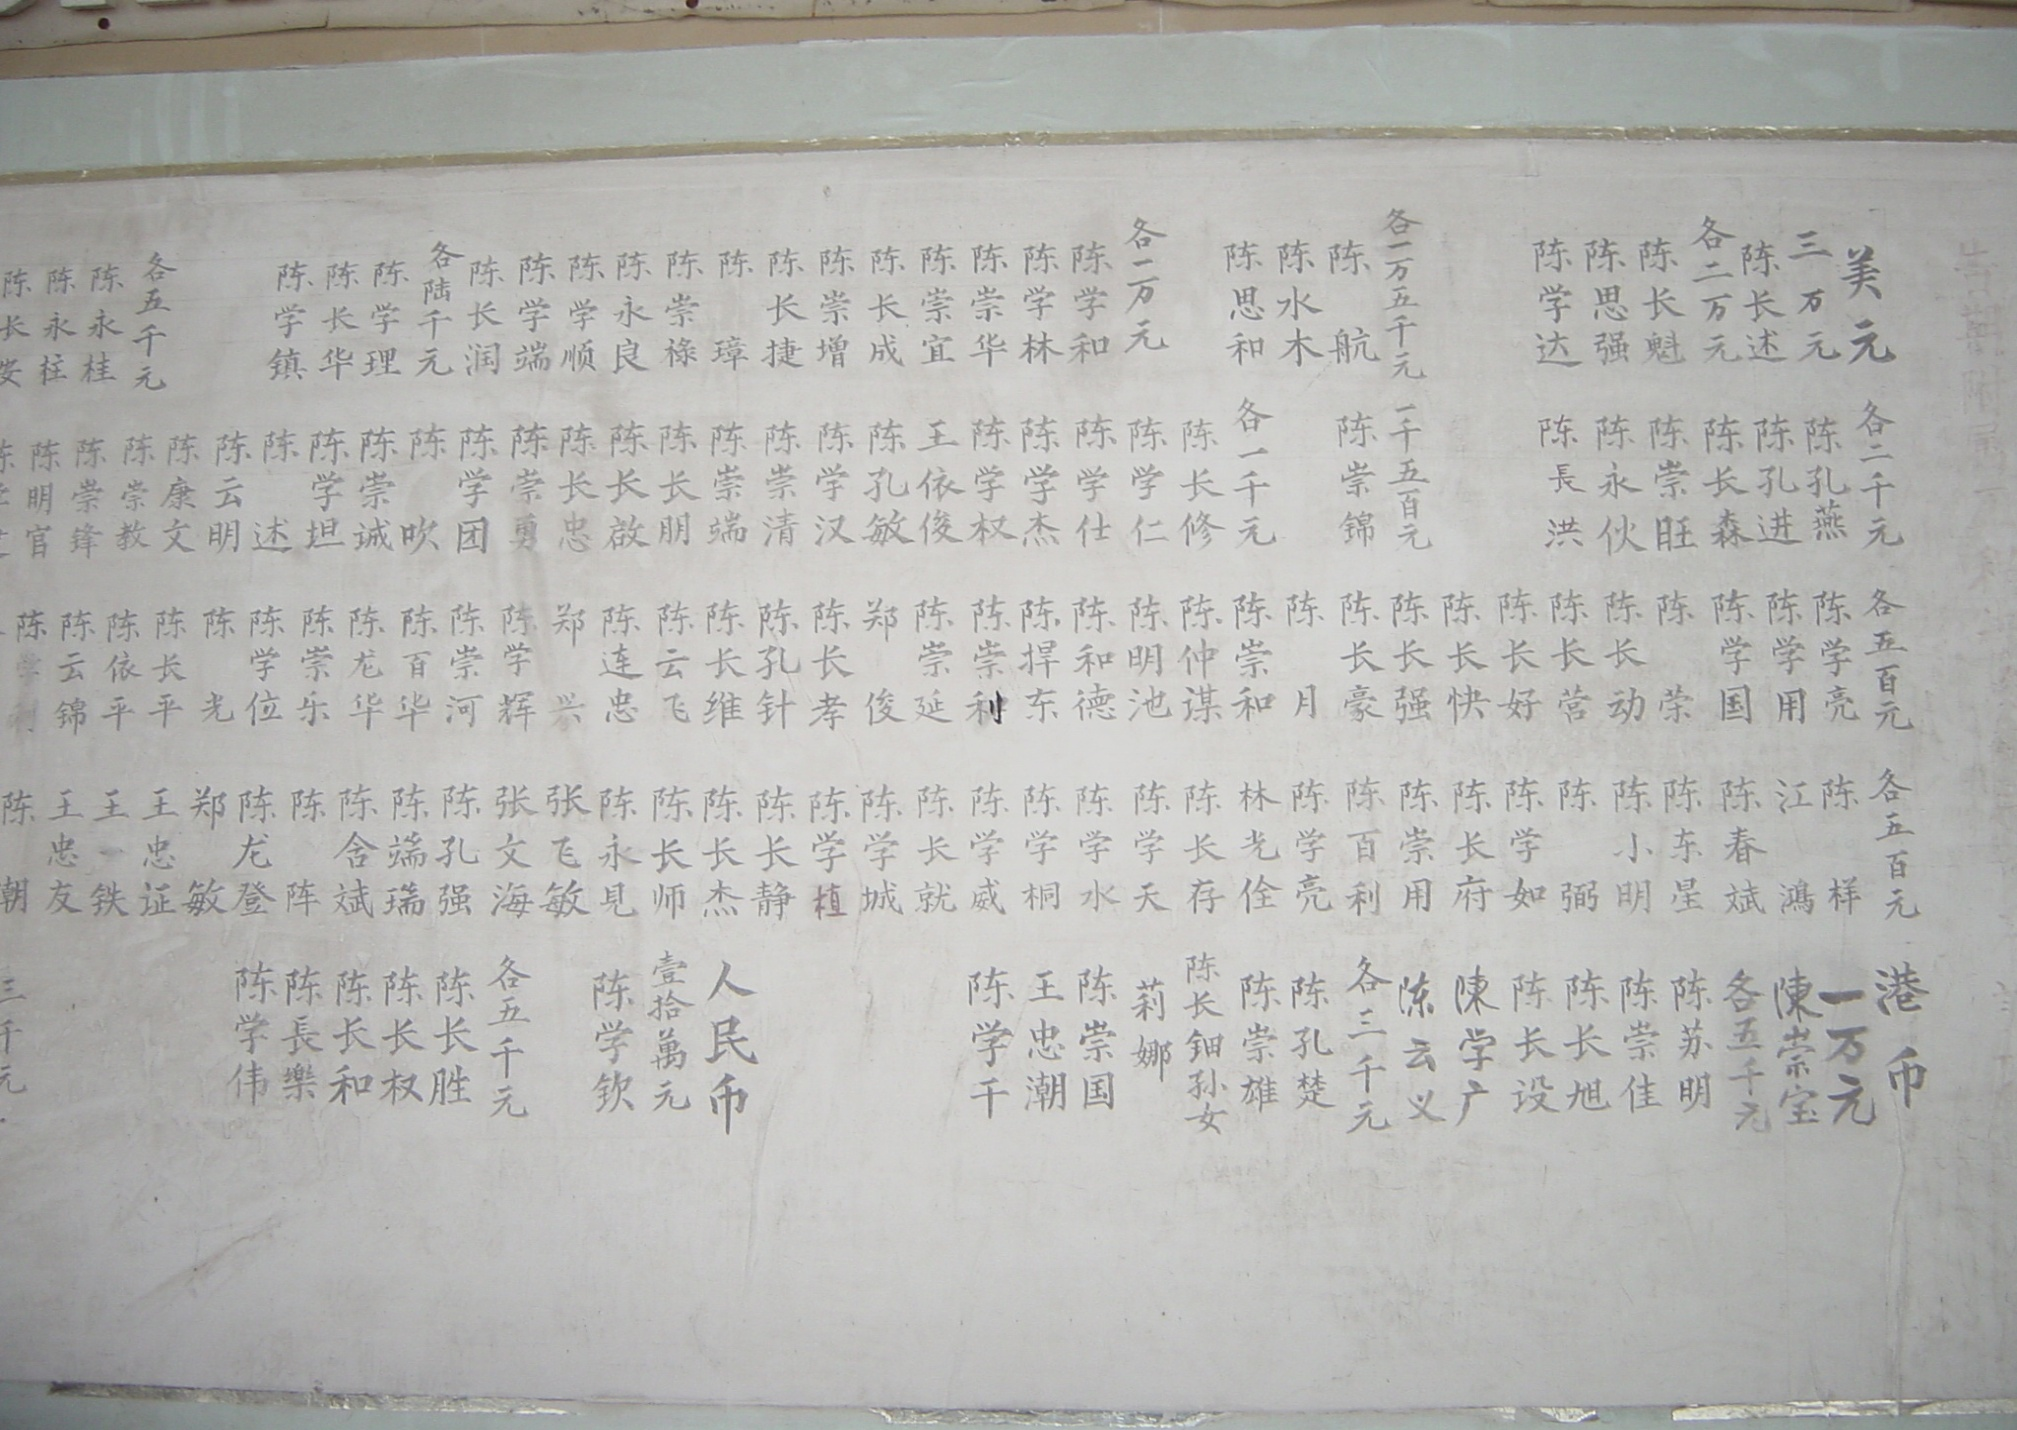 美元
三万元
陈长述
各二万元
陈长魁
陈思强
陈学达
各一万五千元
陈航
陈水木
陈思和
各一万元
陈学和
陈学林
陈崇华
陈崇宜
陈长成
陈崇增
陈长捷
陈璋
陈崇禄
陈永良
陈学顺
陈学端
陈长润
各陆千元
陈学理
陈长华
陈学镇
各五千元
陈永桂
陈永柱
陈长安
各二千元
陈孔燕
陈孔进
陈长森
陈崇旺
陈永伙
陈長洪
一千五百元
陈崇錦
各一千元
陈长修
陈学仁
陈学仕
陈学杰
陈学权
王依俊
陈孔敏
陈学汉
陈崇清
陈崇端
陈长朋
陈长啟
陈长忠
陈崇勇
陈学团
陈吹
陈崇诚
陈学坦
陈述
陈云明
陈康文
陈崇教
陈崇锋
陈明官
各五百元
陈学亮
陈学用
陈学国
陈荣
陈长动
陈长营
陈长好
陈长快
陈长强
陈长豪
陈月
陈崇和
陈仲谋
陈明池
陈和德
陈捍东
陈崇利
陈崇延
郑俊
陈长孝
陈孔针
陈长维
陈云飞
陈连忠
郑兴
陈学辉
陈崇河
陈百华
陈龙华
陈崇乐
陈学位
陈光
陈长平
陈依平
陈云錦
陈学利
各五百元
陈样
江鴻
陈春斌
陈东星
陈小明
陈弼
陈学如
陈长府
陈崇用
陈百利
陈学亮
林光佺
陈长存
陈学天
陈学水
陈学桐
陈学威
陈长就
陈学城
陈学植
陈长静
陈长杰
陈长师
陈永見
张飞敏
张文海
陈孔强
陈端瑞
陈含斌
陈阵
陈龙登
郑敏
王忠证
王一铁
王忠友
陈潮
港币
一万元
陳崇宝
各五千元
陈苏明
陈崇佳
陈长旭
陈长设
陳学广
陈云义
各三千元
陈孔楚
陈崇雄
陈长钿孙女
莉娜
陈崇国
王忠潮
陈学千
人民币
壹拾萬元
陈学钦
各五千元
陈长胜
陈长权
陈长和
陈長樂
陈学伟
三千元